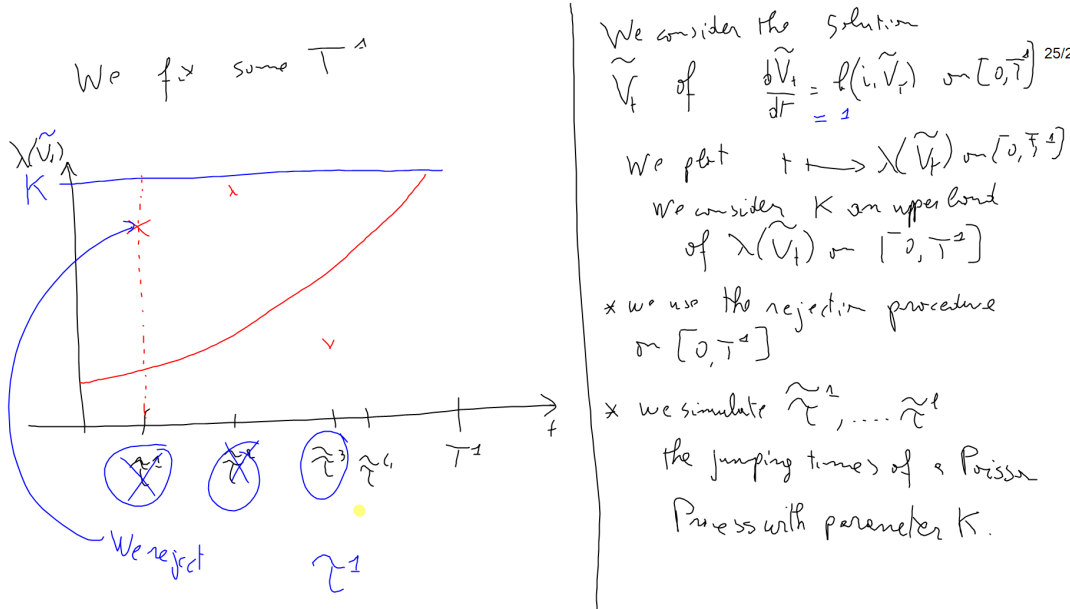 We fix some T¹
λ(Ṽₜ)
K
τ̃¹
τ̃²
τ̃³
τ̃⁴
T¹
t
We reject
τ¹
We consider the solution
Ṽₜ of dṼₜ/dt = f(i, Ṽₜ) on [0, T¹]
= 1
25/2
We plot t ↦ λ(Ṽₜ) on [0, T¹]
We consider K an upper bound
of λ(Ṽₜ) on [0, T¹]
* we use the rejection procedure
on [0, T¹]
* we simulate τ̃¹, .... τ̃ˡ
the jumping times of a Poisson
Process with parameter K.